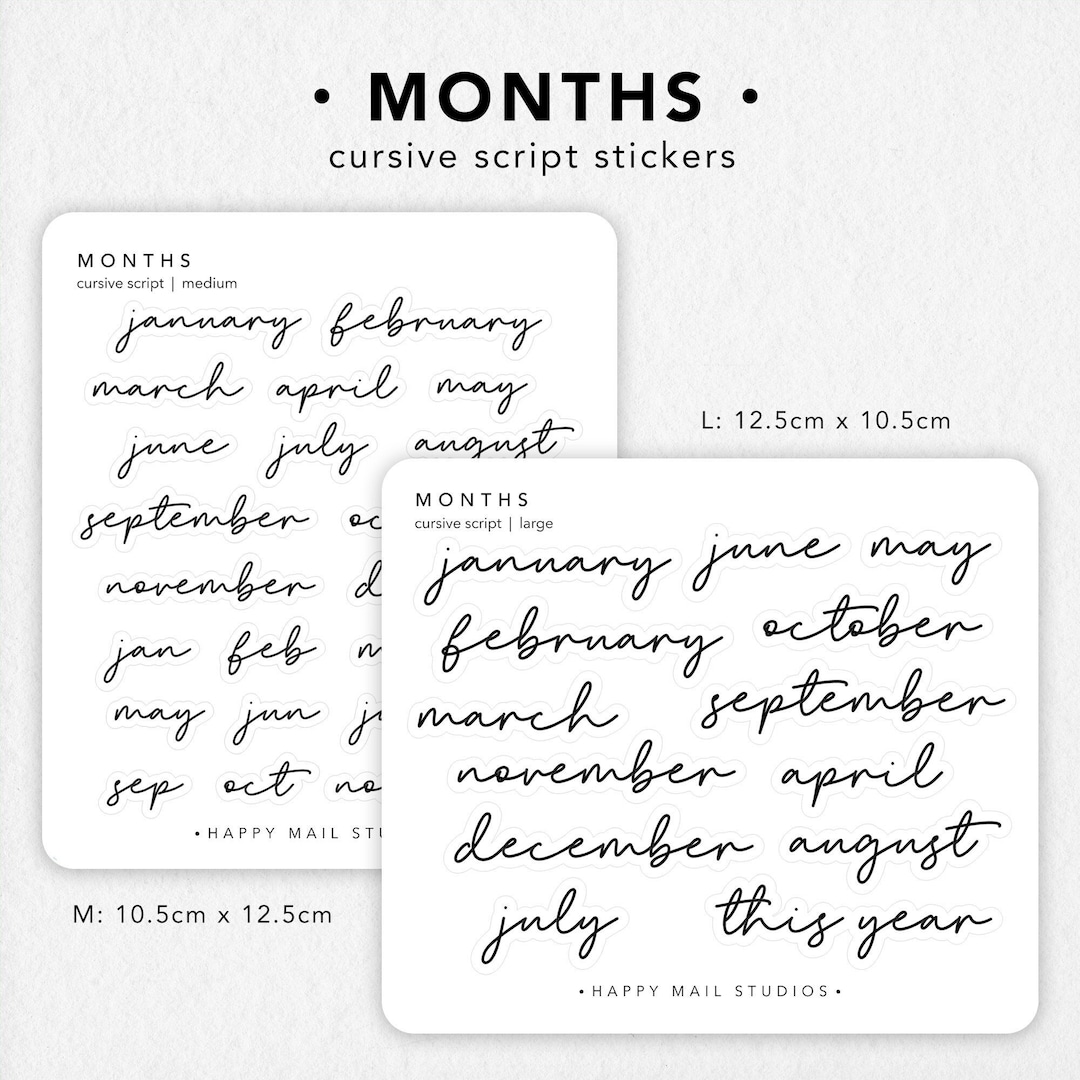 • MONTHS •
cursive script stickers
MONTHS
cursive script | medium
january february
march april may
june july august
september oc
november d
jan feb m
may jun ju
sep oct no
•HAPPY MAIL STU
M: 10.5cm x 12.5cm
L: 12.5cm x 10.5cm
MONTHS
cursive script | large
january june may
february october
march september
november april
december august
july this year
•HAPPY MAIL STUDIOS•